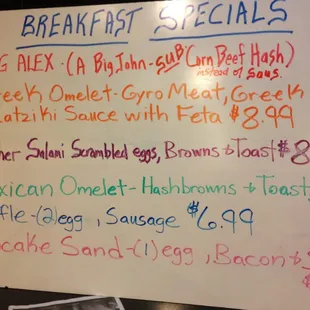 BREAKFAST SPECIALS
G ALEX - (A Big John - SUB Corn Beef Hash)
instead of Saus.
reek Omelet - Gyro Meat, Greek
atziki Sauce with Feta $8.99
her Salami Scrambled eggs, Browns & Toast $8
xican Omelet - Hashbrowns & Toast
ffle - (2) egg, Sausage $6.99
cake Sand - (1) egg, Bacon & $